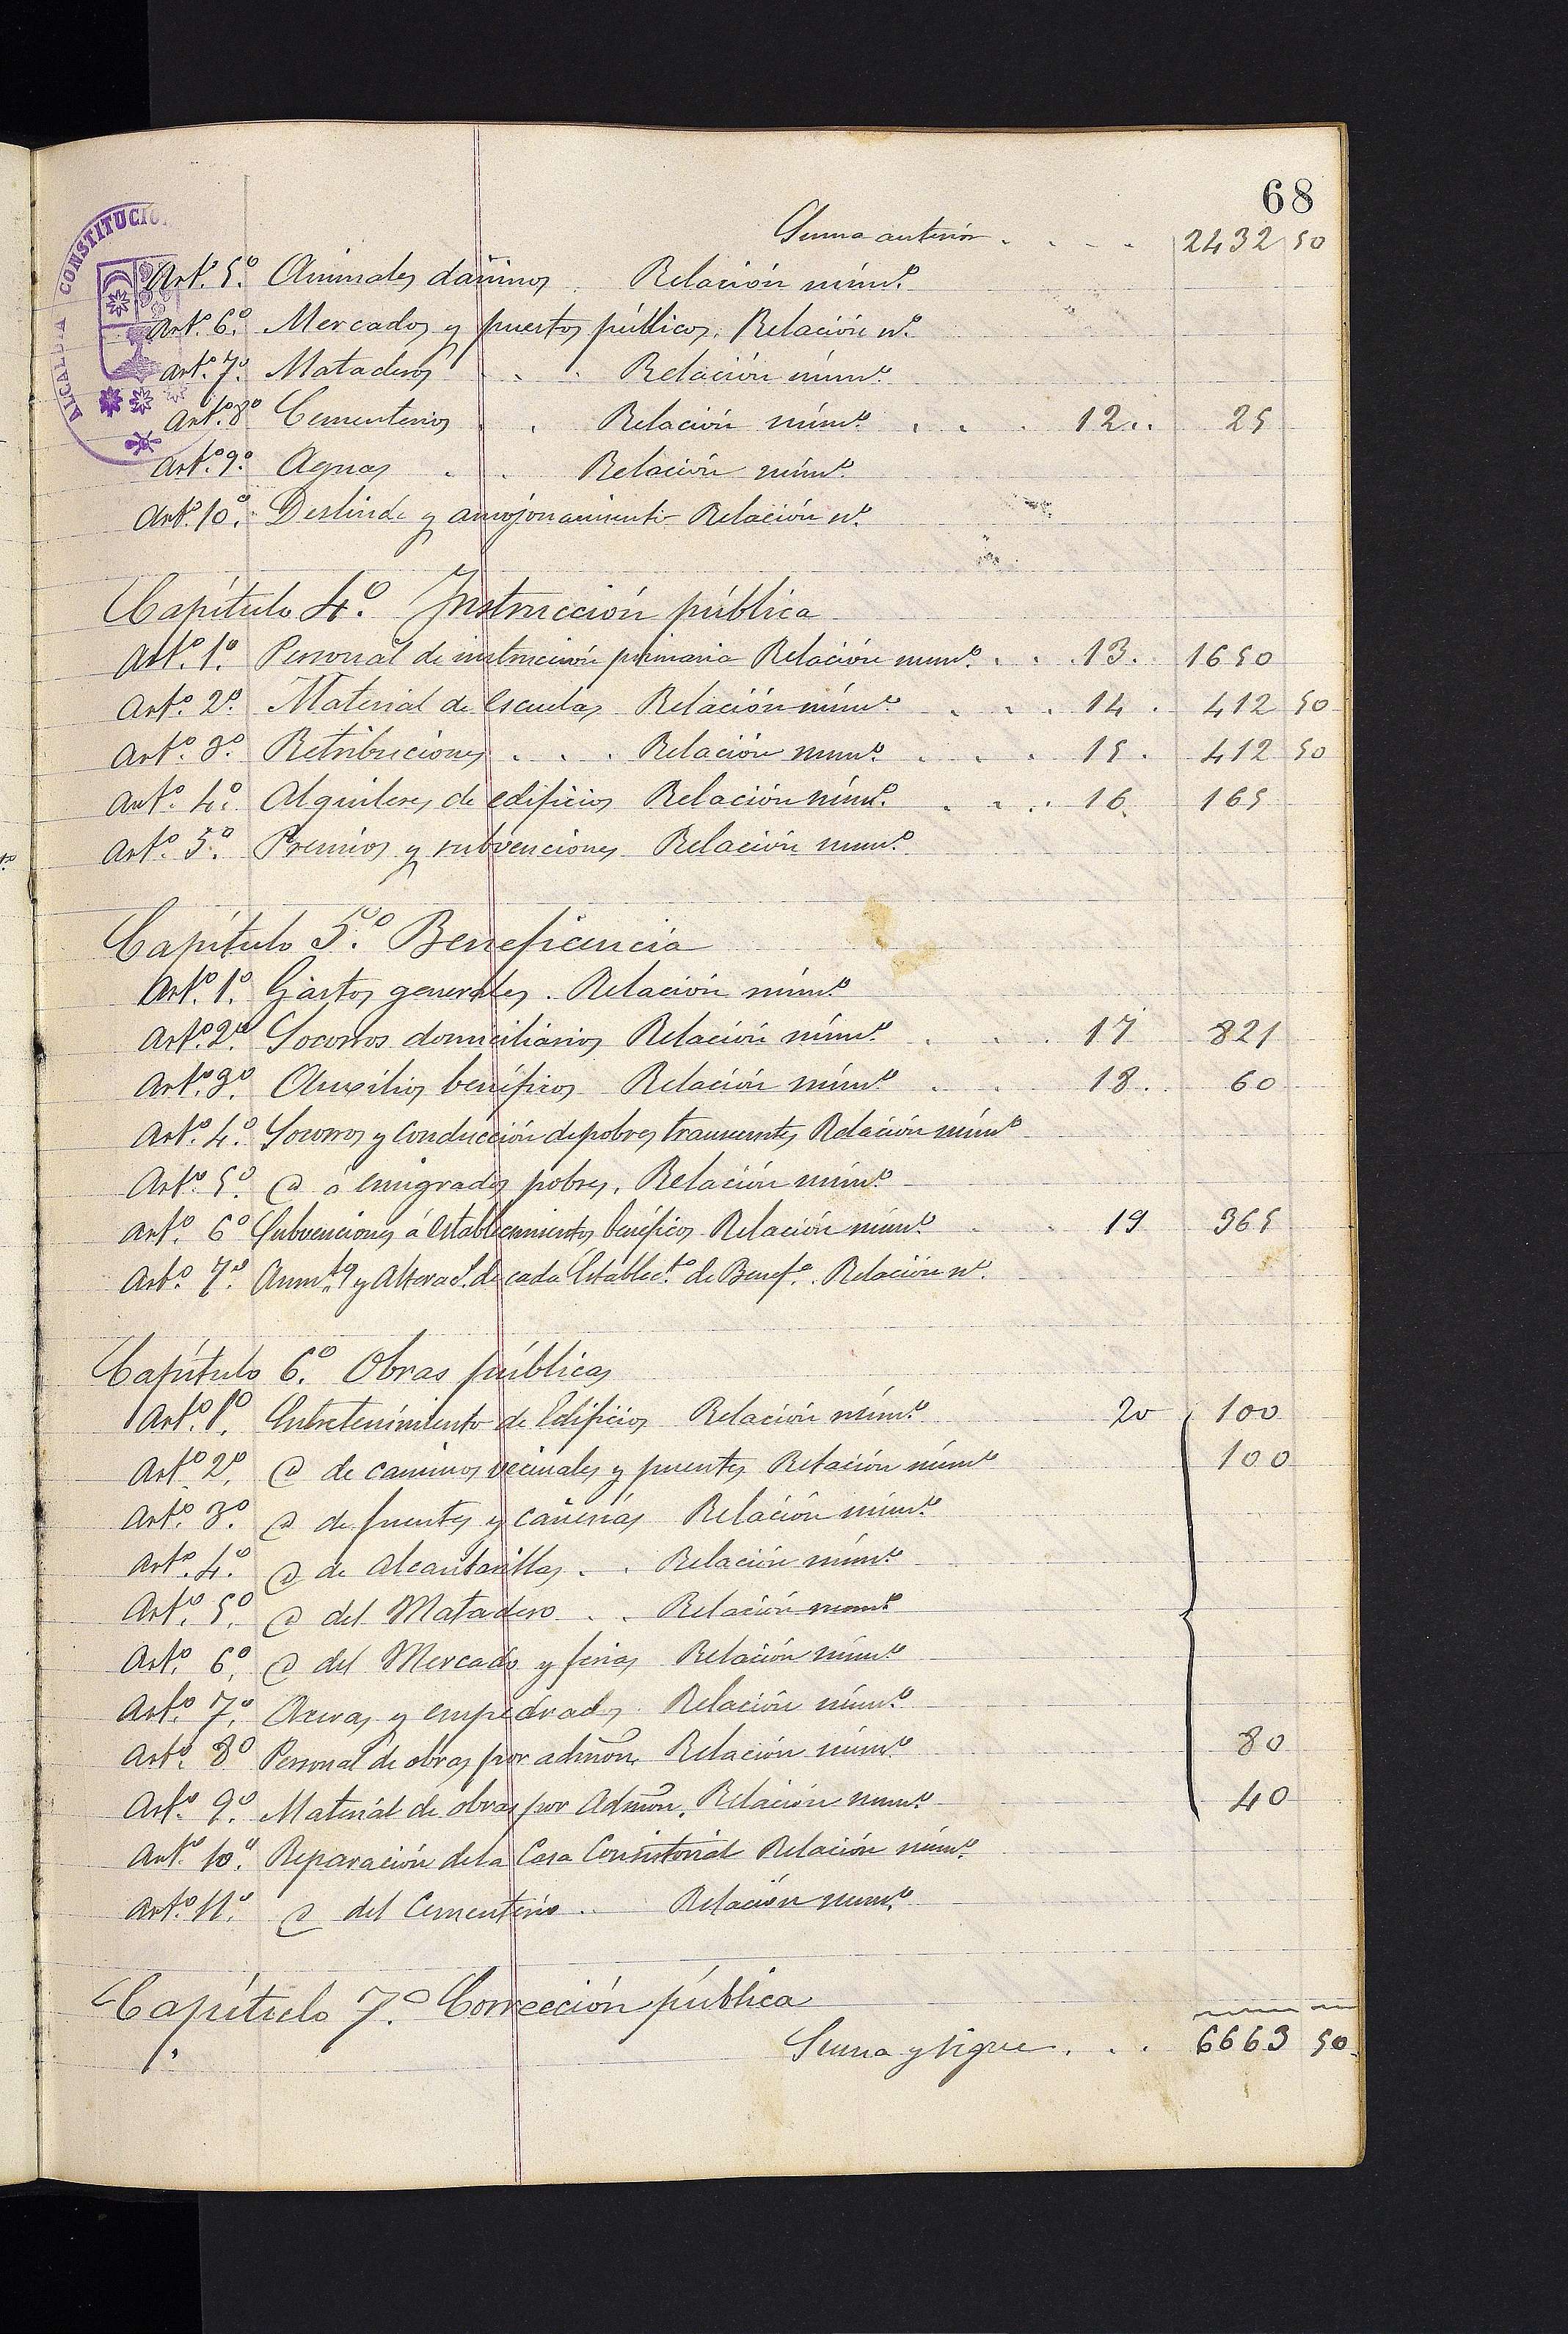 68
Suma anterior . . . . 2432 50
ALCALDIA CONSTITUCIO
Artº. 5º. Animales dañinos . Relación númº.
Artº. 6º. Mercados y puestos públicos. Relación nº.
Artº. 7º. Mataderos . . Relación númº.
Artº. 8º Cementerios . . Relación númº. . . . 12.. 25
Artº. 9º. Aguas . . Relación númº.
Artº. 10º. Deslinde y amojonamiento Relación nº.
Capítulo 4º. Instrucción pública
Artº. 1º. Personal de instrucción primaria Relación numº. . . 13. 1650
Artº. 2º. Material de Escuelas Relación númº . . . 14 . 412 50
Artº. 3º. Retribuciones . . . Relación numº. . . . 15 . 412 50
Artº. 4º. Alquileres de edificios Relación númº. . . . 16. 165
Artº. 5º. Premios y subvenciones Relación numº.
Capítulo 5º. Beneficencia
Artº. 1º. Gastos generales . Relación númº
Artº. 2º. Socorros domiciliarios Relación númº. . . . 17 821
Artº. 3º. Auxilios benéficos Relación númº . . 18. 60
Artº. 4º. Socorros y conducción de pobres transeuntes Relación númº
Artº. 5º. @ á emigrados pobres. Relación númº.
Artº. 6º Subvenciones á establecimientos benéficos Relación númº. . . 19 365
Artº. 7º. y de cada Establectº. de Benefª. Relación nº.
Capítulo 6º. Obras públicas
Artº. 1º. Entretenimiento de Edificios Relación númº. 20 100
Artº. 2º. @ de caminos vecinales y puentes Relación númº 100
Artº. 3º. @ de fuentes y cañerias Relación númº.
Artº. 4º. @ de Alcantarillas . . Relación númº.
Artº. 5º. @ del Matadero . . Relación numº.
Artº. 6º. @ del Mercado y ferias Relación númº.
Artº. 7º. Aceras y empedrados. Relación númº.
Artº. 8º Personal de obras por admón. Relación númº. 80
Artº. 9º. Material de obras por Admón. Relación numº. 40
Artº. 10º. Reparación de la Casa Consistorial Relación númº.
Artº. 11º. @ del Cementerio . . Relación numº.
Capítulo 7º. Corrección pública
Suma y sigue . . . 6663 50